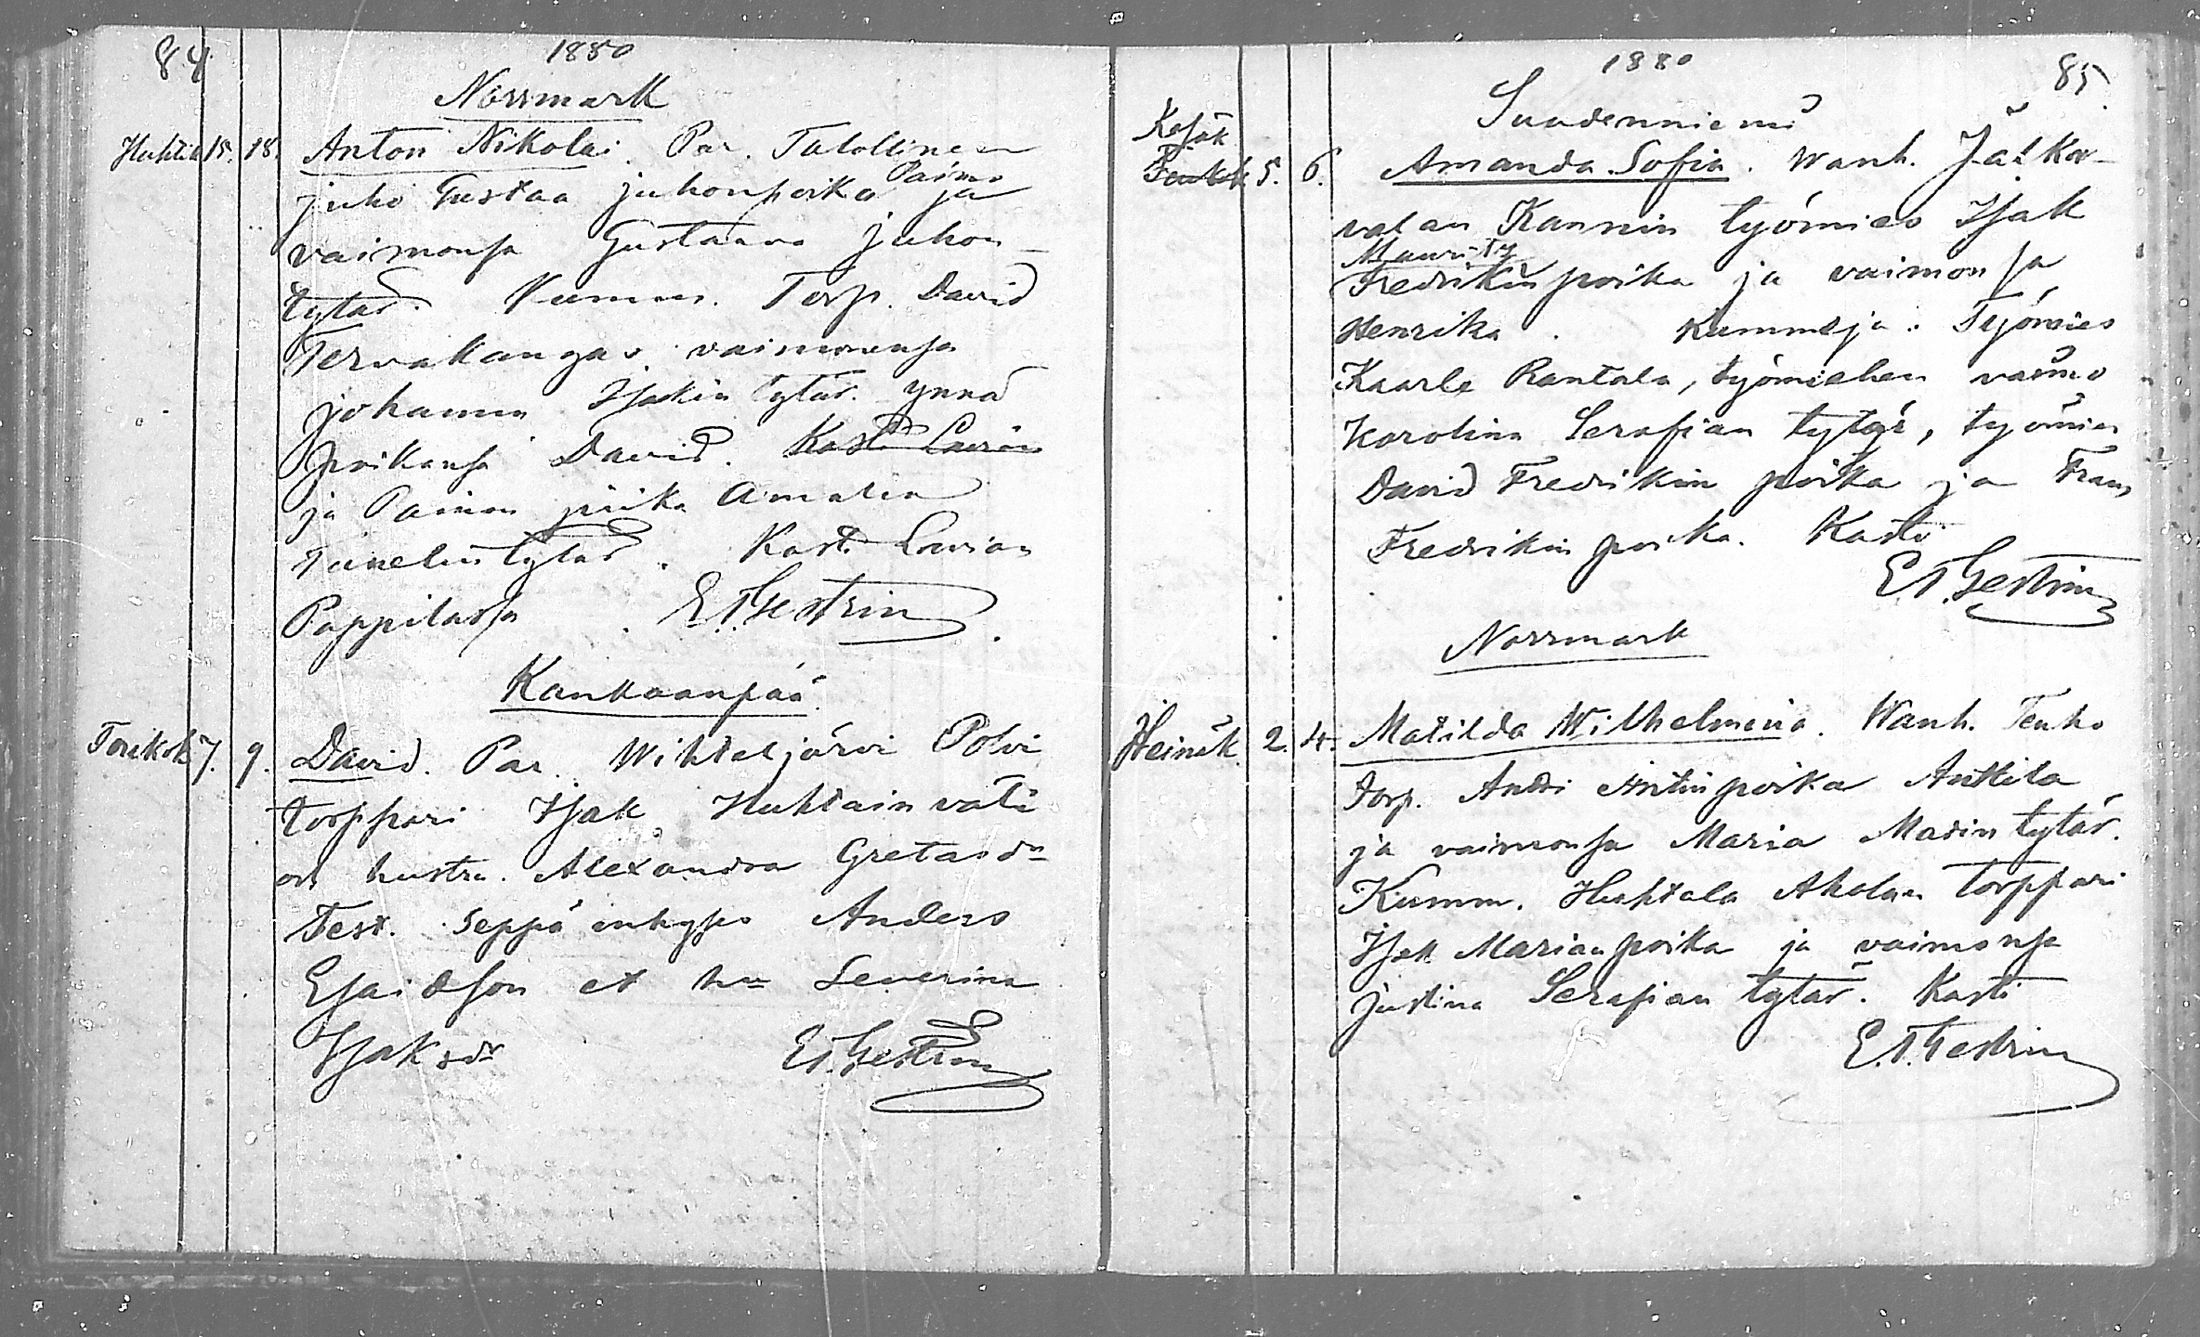 84
1880
Norrmark
Huhtik 15. 18. Anton Nikolai. Par. Talollinen
Juho Gustaa Juhonpoika Paimo ja
vaimonsa Gustaava Juhon-
tytär. Kumm. Torp. David
Tervakangas vaimonensa
Johanna Isakin tytär ynnä
poikansa David. Kasti Lavian
ja Paimon piika Amalia
tytär. Kasti Lavian
Pappilassa. E. A. Gestrin
Kankaanpää.
Toukok 7. 9. David. Par. Wihteljärvi Polvi
torppari Isak Huhtain
och hustru. Alexandra Gretasdr
Test. Seppä Anders
Esaidson et hu Severina
Isaksdr E. A. Gestrin
1880
85.
Suodenniemi
Kesäk
Toukok 5. 6. Amanda Sofia. Wanh. Jalka-
valan Kannin työmies Isak
Mauritz
Fredrikin poika ja vaimonsa
Henrika. Kummeja. Työmies
Kaarle Rantala, työmiehen vaimo
Karolina Serafian tytär, työmies
David Fredrikin poika ja Frans
Fredrikin poika. Kasti
E. A. Gestrin
Norrmark
Heinäk. 2. 4. Matilda Wilhelmina. Wanh. Tenho
torp. Antti Antinpoika Anttila
ja vaimonsa Maria Matin tytär.
Kumm. Huhtala Aholan torppari
Isak Marianpoika ja vaimonsa
Justina Serafian tytär. Kasti
E. A. Gestrin